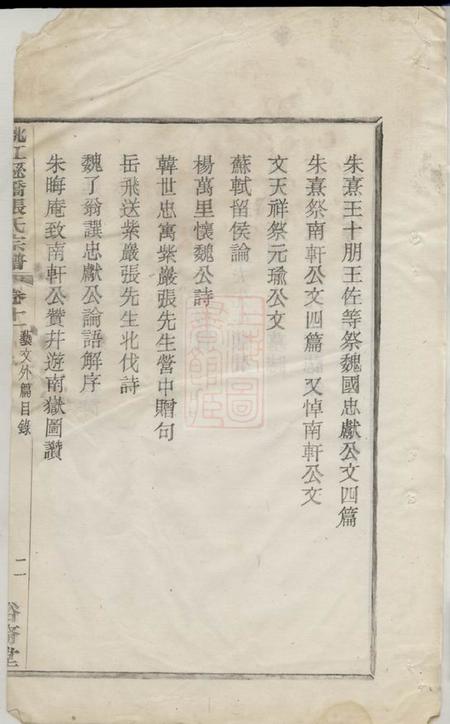 朱熹王十朋王佐等祭魏國忠獻公文四篇
朱熹祭南軒公文四篇 又悼南軒公文
文天祥祭元瑜公文
蘇軾留侯論
楊萬里懷魏公詩
韓世忠寓紫巖張先生營中贈句
岳飛送紫巖張先生北伐詩
魏了翁謹忠獻公論語解序
朱晦庵致南軒公贊并遊南嶽圖讚
張氏宗譜 卷十一 藝文外篇目錄 二